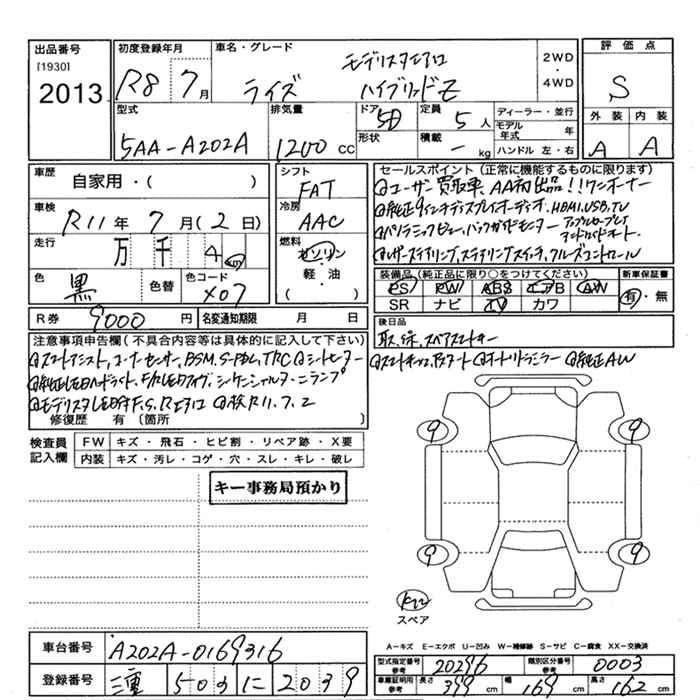 出品番号
[1930]
2013
初度登録年月
R8 7月
車名・グレード
モデリスタエアロ
ライズ ハイブリッドZ
2WD
・
4WD
評価点
S
外装 内装
A A
型式
5AA-A202A
排気量
1200 cc
ドア
5D
形状
定員
5人
積載
- kg
ディーラー・並行
モデル年式 年
ハンドル 左・右
車歴
自家用・( )
車検
R11年 7月(2日)
走行
万 千 4 km
色
黒
色替
色コード
X07
シフト
FAT
冷房
AAC
燃料
ガソリン
軽・油
( )
R券 9000円
名変通知期限 月 日
セールスポイント(正常に機能するものに限ります)
ユーザー買取車、AA初出品!!ワンオーナー
純正9インチディスプレイオーディオ、HDMI、USB、TV
パノラミックビュー、バックガイドモニター
アップルカープレイ
アンドロイドオート
レザーステアリング、ステアリングスイッチ、クルーズコントロール
装備品(純正品に限り○をつけてください)
PS PW ABS エアB AW
SR ナビ TV カワ
新車保証書
有・無
後日品
取、保、スペアキー
スマートキー、Pスタート オートリトラミラー 純正AW
注意事項申告欄(不具合内容等は具体的に記入して下さい)
スマートアシスト、コーナーセンサー、BSM、S-PBL、TRC シートヒーター
純正LEDヘッドライト、F/RLEDフォグ、シーケンシャルターンランプ
モデリスタLED付F、S、Rエアロ 検R11、7、2
修復歴 有 〔箇所 〕
検査員記入欄
FW キズ・飛石・ヒビ割・リペア跡・X要
内装 キズ・汚レ・コゲ・穴・スレ・キレ・破レ
キー事務局預かり
9 9
9 9
スペア
A-キズ E-エクボ U-凹み W-補修跡 S-サビ C-腐食 XX-交換済
車台番号 A202A-0169316
登録番号 三重 503 に 2039
型式指定番号 参考 20296
類別区分番号 参考 0003
車庫証明用 参考 長さ 399 cm 幅 169 cm 高さ 162 cm